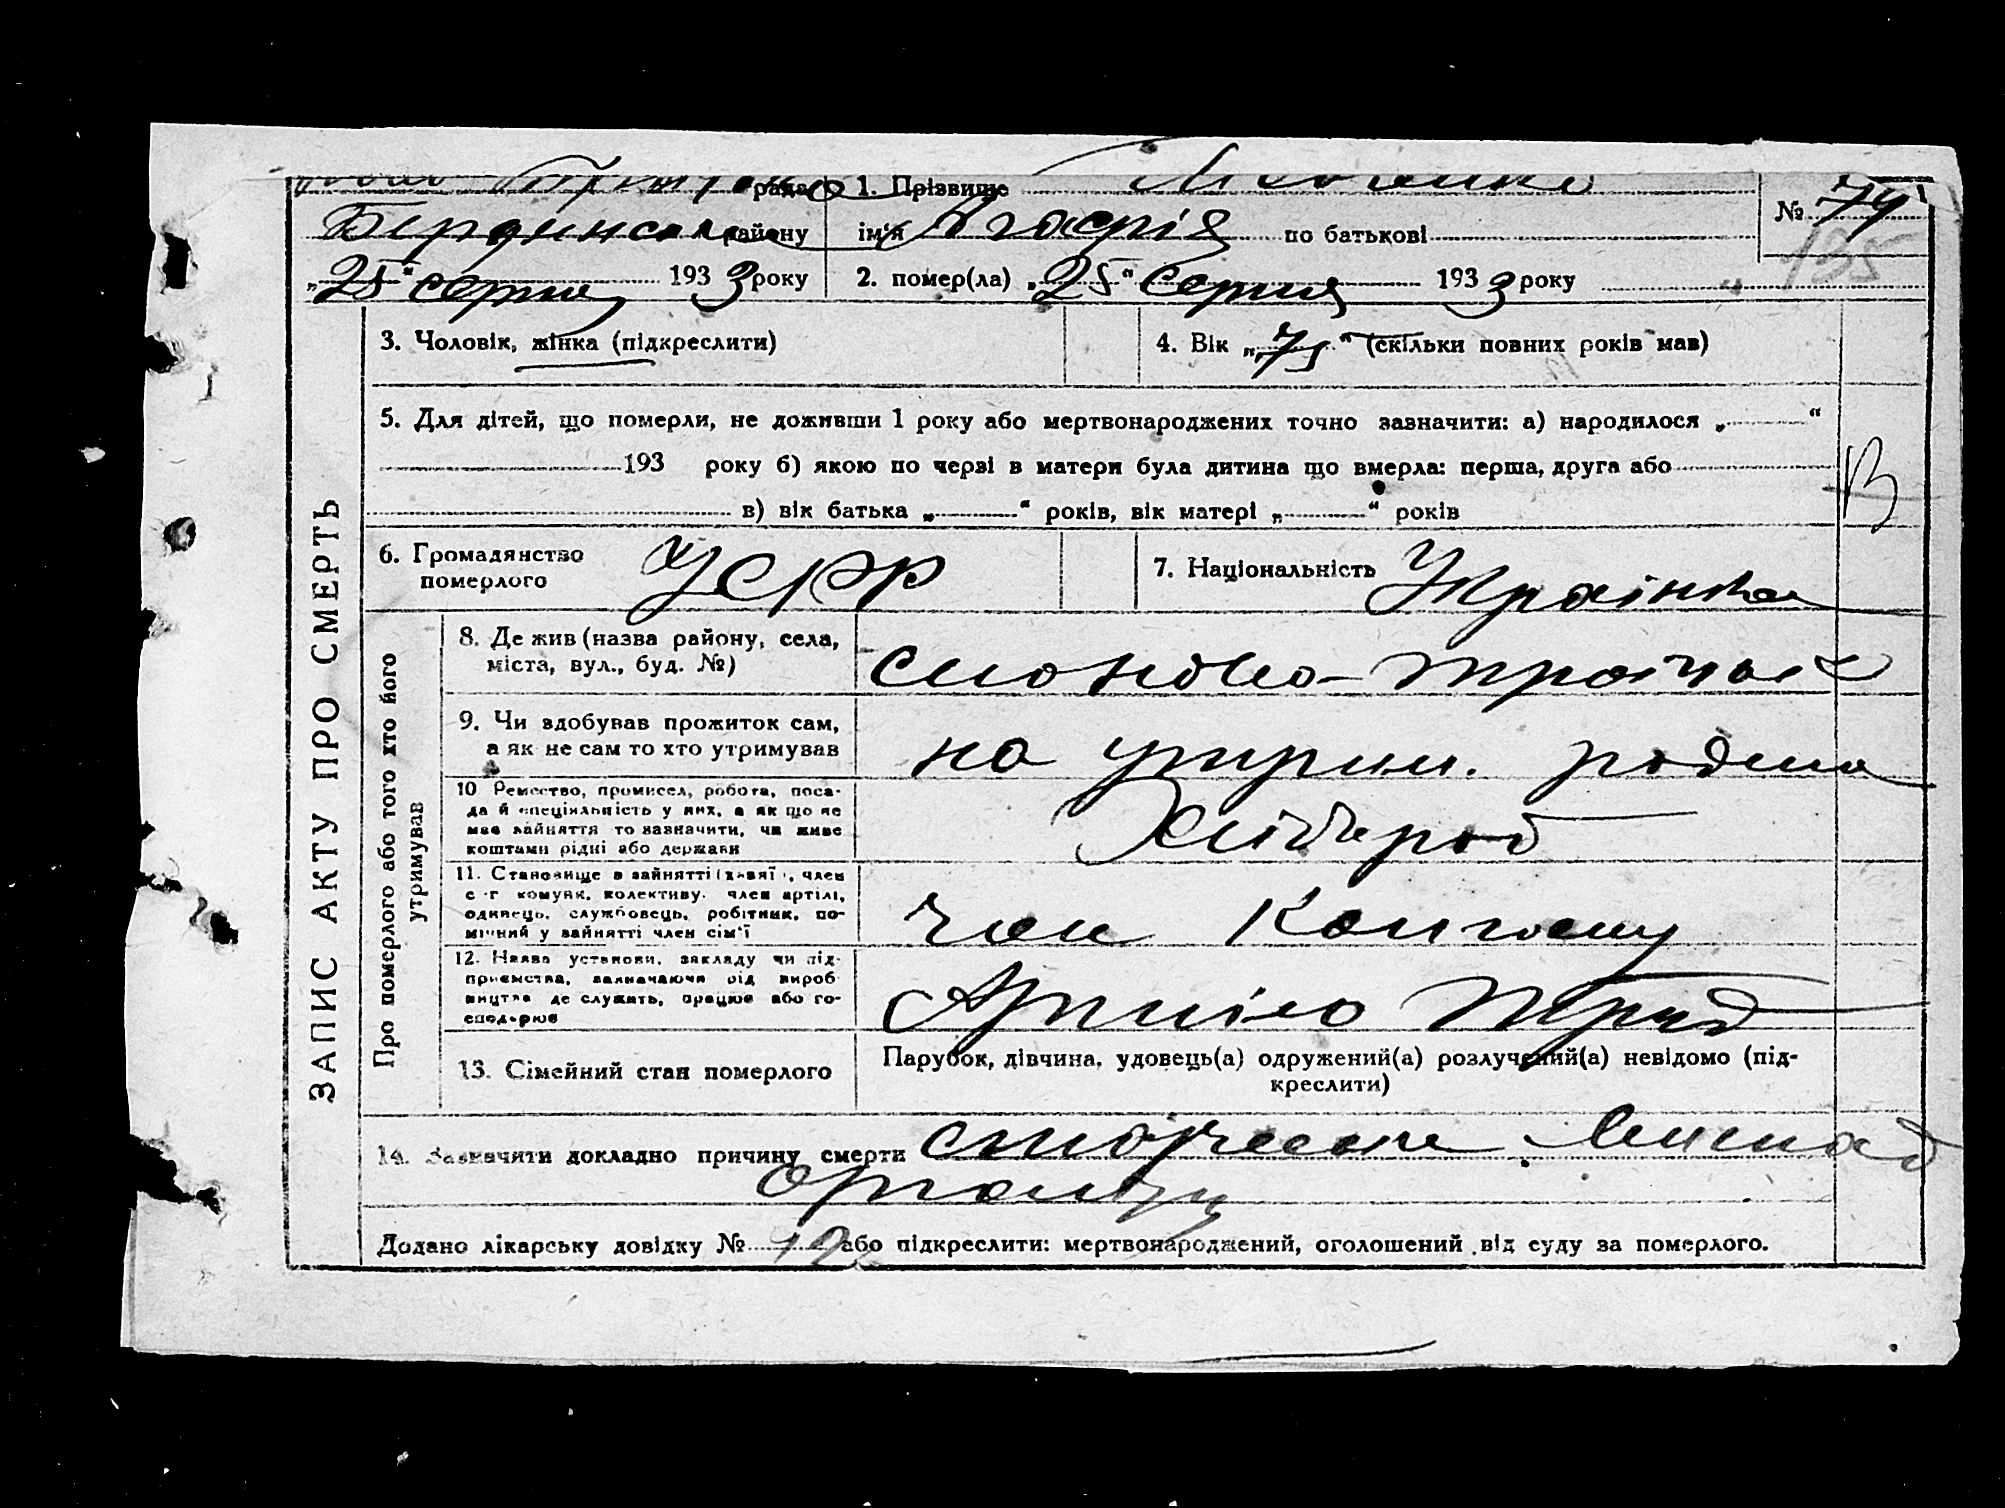 рада
1. Прізвище
району
ім'я
по батькові
№ 74
135
„25" серпня 1933 року
2. помер(ла) „25" серпня 1933 року
ЗАПИС АКТУ ПРО СМЕРТЬ
3. Чоловік, жінка (підкреслити)
4. Вік „75" (скільки повних років мав)
5. Для дітей, що померли, не доживши 1 року або мертвонароджених точно зазначити: а) народилося „ "
193 року б) якою по черзі в матери була дитина що вмерла: перша, друга або
в) вік батька „ " років, вік матері „ " років
В
6. Громадянство
померлого
УСРР
7. Національність Українка
Про померлого або того хто його
утримував
8. Де жив (назва району, села,
міста, вул., буд. №)
9. Чи здобував прожиток сам,
а як не сам то хто утримував
на утрим. родина
10 Ремество, промисел, робота, поса-
да й спеціяльність у них, а як що не
мав зайняття то зазначити, чи живе
коштами рідні або держави
Хлібороб
11. Становище в зайнятті (хазяї , член
с.-г комуни, колективу, член артілі,
одинець, службовець, робітник, по-
мічний у зайнятті член сім'ї
член Колгоспу
12. Назва установи, закладу чи під-
приємства, зазначаючи рід вироб-
ництва де служить, працює або го-
сподарює
Артіль Труд
13. Сімейний стан померлого
Парубок, дівчина, удовець(а) одружений(а) розлучений(а) невідомо (під-
креслити)
14. Зазначити докладно причину смерти
Додано лікарську довідку № 12 або підкреслити: мертвонароджений, оголошений від суду за померлого.